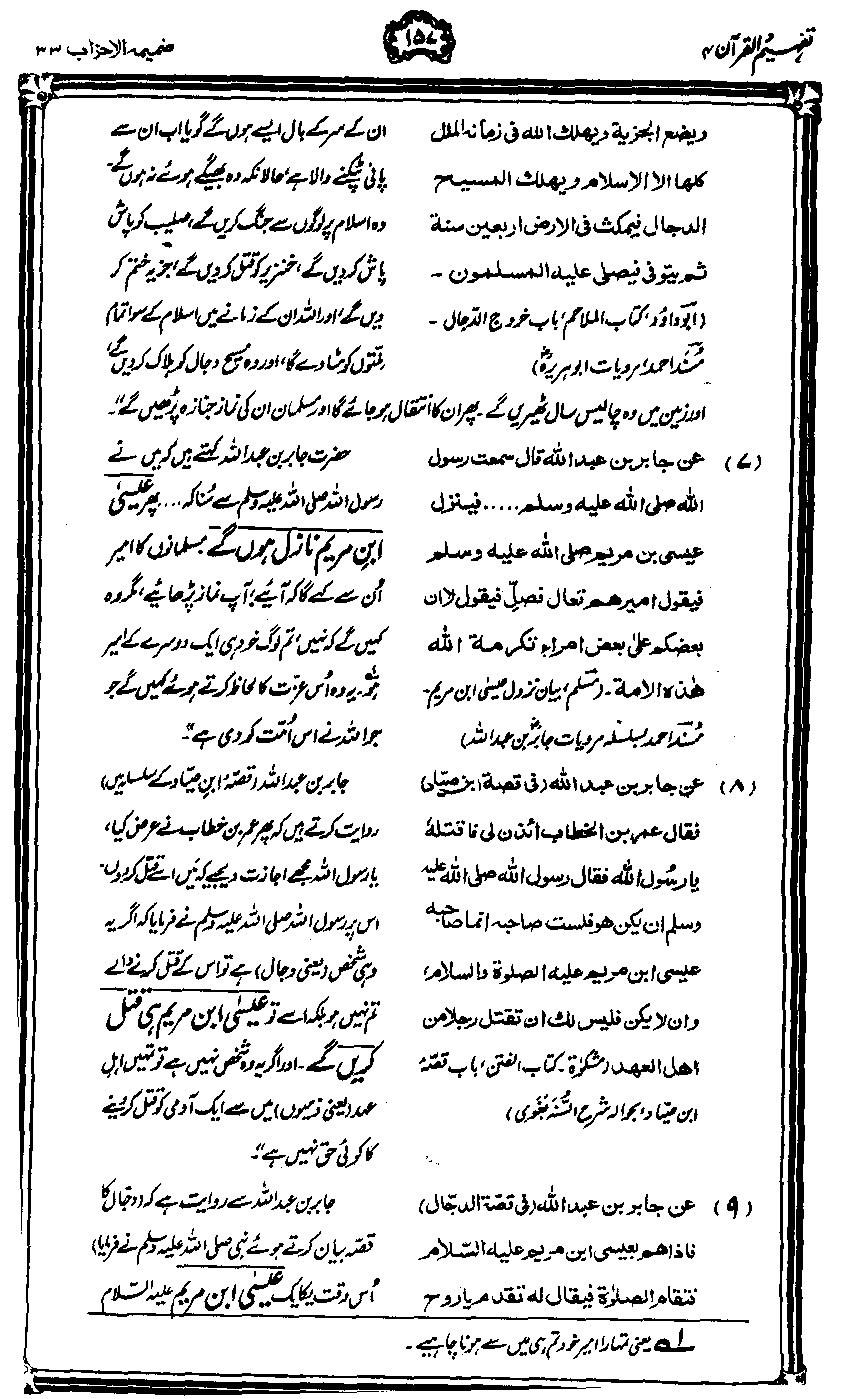 تفہیم القرآن ۴
۱۵۷
ضمیمہ الاحزاب ۳۳
ویضع الجزیة ویھلك الله فی زمانه الملل
کلها الا الاسلام ویھلك المسیح
الدجال فیمکث فی الارض اربعین سنة
ثم یتوفی فیصلی علیه المسلمون ۔
(ابوداؤد، کتاب الملاحم، باب خروج الدجال ۔
مُسند احمد، مرویات ابو ہریرہؓ)
ان کے سر کے بال ایسے ہوں گے گویا اب ان سے
پانی ٹپکنے والا ہے، حالانکہ وہ بھیگے ہوئے نہ ہوں گے۔
وہ اسلام پر لوگوں سے جنگ کریں گے، صلیب کو پاش
پاش کر دیں گے، خنزیر کو قتل کر دیں گے، جزیہ ختم کر
دیں گے، اور اللہ ان کے زمانے میں اسلام کے سوا تمام
ملتوں کو مٹا دے گا، اور وہ مسیح دجال کو ہلاک کر دیں گے،
اور زمین میں وہ چالیس سال ٹھیریں گے ۔ پھر ان کا انتقال ہو جائے گا اور مسلمان ان کی نماز جنازہ پڑھیں گے"۔
(۷) عن جابر بن عبد الله قال سمعت رسول
الله صلی الله علیه وسلم ..... فینزل
عیسی بن مریم صلی الله علیه وسلم
فیقول امیرهم تعال فصلِّ فیقول لا ان
بعضکم علیٰ بعض امراء تکرمة الله
هٰذه الامة ۔ (مسلم، بیان نزول عیسیٰ ابن مریم۔
مُسند احمد بسلسلہ مرویات جابرؓ بن عبداللہ)
حضرت جابر بن عبد اللہ کہتے ہیں کہ میں نے
رسول اللہ صلی اللہ علیہ وسلم سے سُنا کہ .... پھر عیسیٰ
ابن مریم نازل ہوں گے مسلمانوں کا امیر
اُن سے کہے گا کہ آیئے، آپ نماز پڑھایئے، مگر وہ
کہیں گے کہ نہیں، تم لوگ خود ہی ایک دوسرے کے امیر
ہو۔ یہ وہ اُس عزت کا لحاظ کرتے ہوئے کہیں گے جو
جو اللہ نے اس اُمت کو دی ہے"۔
(۸) عن جابر بن عبد الله (فی قصة ابن صیاد)
فقال عمر بن الخطاب ائذن لی فاقتله
یا رسُول الله فقال رسول الله صلی الله علیه
وسلم ان یکن هو فلست صاحبه انما صاحبه
عیسی ابن مریم علیه الصلوة والسلام،
وان لا یکن فلیس لك ان تقتل رجلا من
اهل العهد (مشکوٰة ۔ کتاب الفتن، باب قصّہ
ابن صیاد، بحوالہ شرح السُّنّہ بَغَوِی)
جابر بن عبداللہ (قصّہ ابنِ صیّاد کے سلسلہ میں)
روایت کرتے ہیں کہ پھر عمر بن خطاب نے عرض کیا،
یا رسول اللہ مجھے اجازت دیجیے کہ میں اسے قتل کر دوں۔
اس پر رسول اللہ صلی اللہ علیہ وسلم نے فرمایا کہ اگر یہ
وہی شخص (یعنی دجال) ہے تو اس کے قتل کرنے والے
تم نہیں ہو بلکہ اسے تو عیسیٰ ابن مریم ہی قتل
کریں گے ۔ اور اگر یہ وہ شخص نہیں ہے تو تمہیں اہلِ
عہد (یعنی ذمیوں) میں سے ایک آدمی کو قتل کر دینے
کا کوئی حق نہیں ہے"۔
(۹) عن جابر بن عبد الله (فی قصّة الدجّال)
فاذاهم بعیسی ابن مریم علیه السّلام
فتقام الصلوٰة فیقال له تقدم یا روح
جابر بن عبد اللہ سے روایت ہے کہ (دجّال کا
قصّہ بیان کرتے ہوئے نبی صلی اللہ علیہ وسلم نے فرمایا)
اُس وقت یکایک عیسیٰ ابن مریم علیہ السّلام
لہ یعنی تمہارا امیر خود تم ہی میں سے ہونا چاہیے ۔